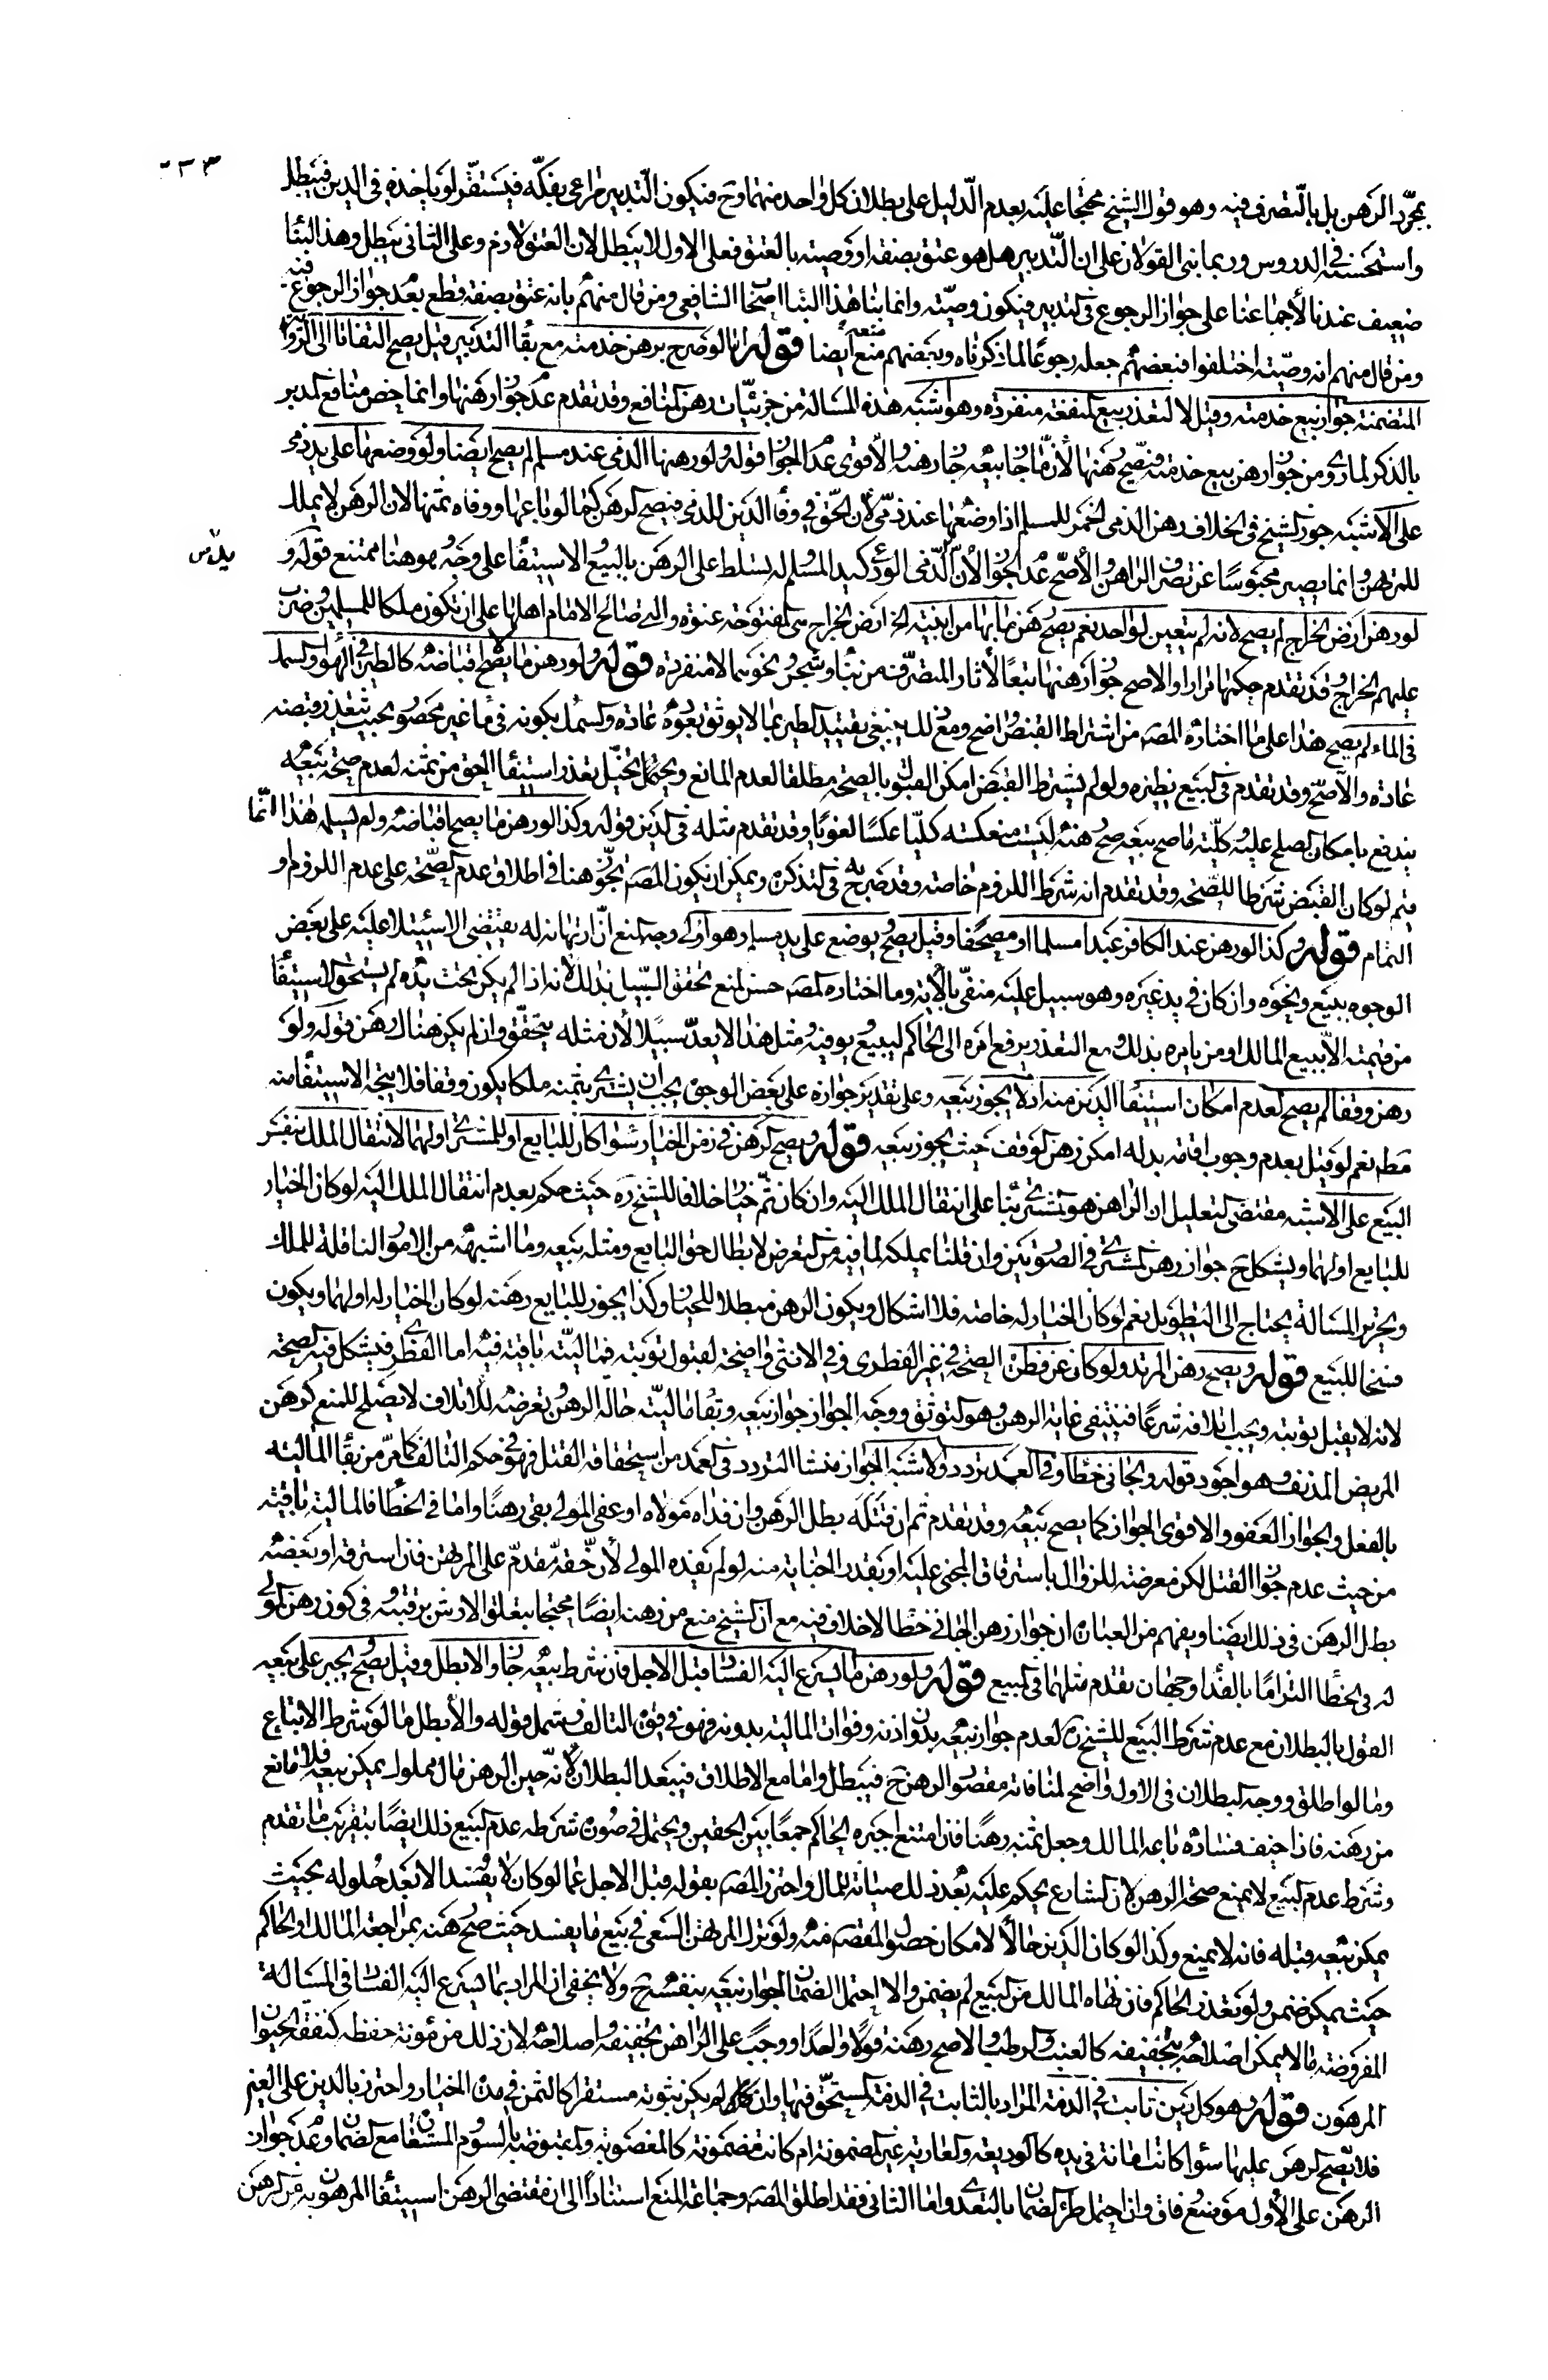 بمجرّد الرهن بل بالتصرف فيه وهو قول الشيخ محتجا عليه بعدم الدليل على بطلان كل واحد منهما وح فيكون التدبير مراعى بفكّه فيستقر او ياخذه في الدين فيبطل
واستحسنه في الدروس وربما بني القولان على ان التدبير هل هو عتق بصفة او وصية بالعتق فعلى الاول لا يبطل لان العتق لازم وعلى الثاني يبطل وهذا البناء
ضعيف عندنا لأجماعنا على جواز الرجوع في التدبير فيكون وصيّة وانما بنا هذا البناء اصحاب الشافعي ومن قال منهم بانه عتق بصفة قطع بعدم جواز الرجوع فيه
ومن قال منهم انه وصيّة اختلفوا فبعضهم جعله رجوعًا لما ذكرناه وبعضهم منع منه ايضا قوله اما لو صرح برهن خدمته مع بقاء التدبير قيل يصح التفاتا الى الرواية
المتضمنة جواز بيع خدمته وقيل لا لتعذر بيع المنفعة منفردة وهو اشبه هذه المسالة من جزئيّات رهن المنافع وقد تقدم عدم جواز رهنها وانما خص منافع المدبر
بالذكر لما روى من جواز بيع خدمته فتصح رهنها لأن ما جاز بيعه جاز رهنه والأقوى عدم الجواز قوله ولو رهنها الذمى عند مسلم لم يصح ايضا ولو وضعها على يد ذمى
على الأشبه جوز الشيخ في الخلاف رهن الذمى الخمر للمسلم اذا وضعها عند ذمّى لأن الحق في وفاء الدين للذمى فيصح الرهن كما لو باعها ووفاه ثمنها لان الرهن لا يملك
للمرتهن وانما يصير محبوسًا عن تصرف الراهن والأصح عدم الجواز لأن يد الذّمى الودعى كيد المسلم له تسلط على الرهن بالبيع والاستيفاء على وجه وهو هنا ممتنع قوله و
لو رهن ارض الخراج لم يصح لانه لم يتعين لواحد نعم يصح رهن ما بها من ابنية الخ ارض الخراج هي المفتوحة عنوة والتي صالح الامام اهلها على ان تكون ملكا للمسلمين وضرب
عليهم الخراج وقد تقدم حكمها مرارا والاصح جواز رهنها تبعًا لأثار المتصرّف من بناء وشجر ونحوهما لا منفردة قوله ولو رهن ما لا يصح اقباضه كالطير في الهواء والسمك
في الماء لم يصح هذا على ما اختاره المصر من اشتراط القبض واضح ومع ذلك ينبغى تقييد الطير بما لا يوثق بعوده عادة والسمك بكونه في ماء غير محصور بحيث يتعذر قبضه
عادة والأصح وقد تقدم في البيع نظيره ولو لم يشترط القبض امكن القول بالصحة مطلقا لعدم المانع وتخيّل تعذر استيفاء الحق من ثمنه لعدم صحة بيعه
يندفع بامكان الصلح عليه وكلية ما صح بيعه صح رهنه ليست منعكسة كليّا عكسًا لغويًا وقد تقدم مثله في الدين قوله وكذا لو رهن ما يصح اقباضه ولم يسلمه هذا انّما
يتم لو كان القبض شرطا للصحة وقد تقدم انه شرط اللزوم خاصة وقد صرح به في التذكرة ويمكن ان يكون المصر تجوّز هنا في اطلاق عدم الصّحة على عدم اللزوم او
التمام قوله وكذا لو رهن عند الكافر عبدا مسلما او مصحفا وقيل يصح ويوضع على يد مسلم وهو اولى وجه المنع انّ ارتهانه له يقتضى الاستيلاء عليه على بعض
الوجوه ببيع ونحوه وان كان في يد غيره وهو سبيل عليه منفى بالأية وما اختاره المصر حسن لمنع تحقق السبيل بذلك لأنه اذا لم يكن تحت يده لم يستحق الاستيفاء
من قيمته الا ببيع المالك او من يامره بذلك ومع التعذر يرفع امره الى الحاكم ليبيع ويوفيه ومثل هذا لا يعدّ سبيلا لأن مثله يتحقق وان لم يكن هناك رهن قوله ولو
رهن وقفا لم يصح لعدم امكان استيفاء الدين منه اذ لا يجوز بيعه وعلى تقدير جوازه على بعض الوجوه يجب ان يشترى بثمنه ملكا يكون وقفا فلا يتجه الاستيفاء منه
مطم نعم لو قيل بعدم وجوب اقامة بدله امكن رهن الوقف حيث يجوز بيعه قوله ويصح الرهن في زمن الخيار سواء كان للبايع او للمشترى او لهما لانتقال الملك بنفس
البيع على الأشبه مقتضى التعليل ان الراهن هو المشترى بناء على انتقال الملك اليه وان كان ثمّ خيار خلافا للشيخ ره حيث حكم بعدم انتقال الملك اليه لو كان الخيار
للبايع او لهما ويشكل ح جواز رهن المشترى في الصورتين وان قلنا بملكه لما فيه من التعرض لابطال حق البايع ومثله بيعه وما اشبهه من الامور الناقلة للملك
وتحرير المسالة يحتاج الى التطويل نعم لو كان الخيار له خاصة فلا اشكال ويكون الرهن مبطلا للخيار وكذا يجوز للبايع رهنه لو كان الخيار له او لهما ويكون
فسخا للبيع قوله ويصح رهن المرتد ولو كان عن فطرة الصحة في غير الفطرى وفي الانثى واضحة لقبول توبته فماليّته باقية فيه اما الفطرى فيشكل فيه الصحة
لانه لا يقبل توبته ويجب اتلافه شرعًا فينتفى غاية الرهن وهو التوثق ووجه الجواز جواز بيعه وبقاء ماليّته حالة الرهن وتعرضه للاتلاف لا يصلح للمنع كرهن
المريض المدنف وهو اجود قوله والجانى خطًا وفي العمد تردد والاشبه الجواز منشا التردد في العمد من استحقاقه القتل فهو في حكم التالف كما مر ومن بقاء المالية
بالفعل والجواز العفو والاقوى الجواز كما يصح بيعه وقد تقدم ثم ان قتله بطل الرهن وان فداه مولاه او عفى الولى بقى رهنًا واما في الخطأ فالمالية باقية
من حيث عدم جواز القتل لكن معرضة للزوال باسترقاق المجنى عليه او بقدر الجناية منه لو لم يفده المولى لأن حقه مقدّم على المرتهن فان استرقه او بعضه
بطل الرهن في ذلك ايضا ويفهم من العبارة ان جواز رهن الجانى خطًا لا خلاف فيه مع ان الشيخ منع من رهنه ايضًا محتجا بتعلق الارش برقبته وفي كون رهن المولى
له في الخطا التزامًا بالفداء وجهان تقدم مثلهما في البيع قوله ولو رهن ما يسرع اليه الفساد قبل الاجل فان شرط بيعه جاز والا بطل وقيل يصح ويجبر على بيعه
القول بالبطلان مع عدم شرط البيع للشيخ ره لعدم جواز بيعه بدون اذنه وفوات المالية بدونه فهو في قوة التالف وشمل قوله والا بطل ما لو شرط الا يباع
وما لو اطلق ووجه البطلان في الاول واضح لمنافاته مقصود الرهن ح فيبطل واما مع الاطلاق فيبعد البطلان لأنه حين الرهن مال مملوك يمكن بيعه فلا مانع
من رهنه فاذا خيف فساده باعه المالك وجعل ثمنه رهنًا فان امتنع اجبره الحاكم جمعًا بين الحقين ويحتمل في صورة شرطه عدم البيع ذلك ايضًا بتقريب ما تقدم
وشرط عدم البيع لا يمنع صحة الرهن لان الشارع يحكم عليه بعد ذلك صيانة للمال واحترز المصر بقوله قبل الاجل عما لو كان لا يفسد الا بعد حلوله بحيث
يمكن بيعه قبله فانه لا يمنع وكذا لو كان الدين حالّا لامكان حصول المقصم منه ولو ترك المرتهن السعى في بيع ما يفسد حيث صح رهنه بمراجعة المالك او الحاكم
حيث يمكن ضمن ولو تعذر الحاكم فان نهاه المالك من البيع لم يضمن والا احتمل الضمان لجواز بيعه بنفسه ح ولا يخفى ان المراد بما يسرع اليه الفساد في المسالة
المفروضة ما لا يمكن اصلاحه بتجفيفه كالعنب والرطب والا صح رهنه قولًا واحدًا ووجب على الراهن تجفيفه واصلاحه لان ذلك من مؤنة حفظه كنفقة الحيوان
المرهون قوله وهو كل دين ثابت في الذمة المراد بالثابت في الذمة المستحق فيها وان لم يكن ثبوته مستقرا كالثمن في مدة الخيار واحترز بالدين على العين
فلا يصح الرهن عليها سواء كانت امانة في يده كالوديعة والعارية غير المضمونة ام كانت مضمونة كالمغصوبة والمقبوضة بالسوم والمستعارة مع الضمان وعدم جواز
الرهن على الأول موضع وفاق وان احتمل طرو الضمان بالتعدى واما الثانى فقد اطلق المصر وجماعة المنع استنادًا الى ان مقتضى الرهن استيفاء المرهون به من الرهن